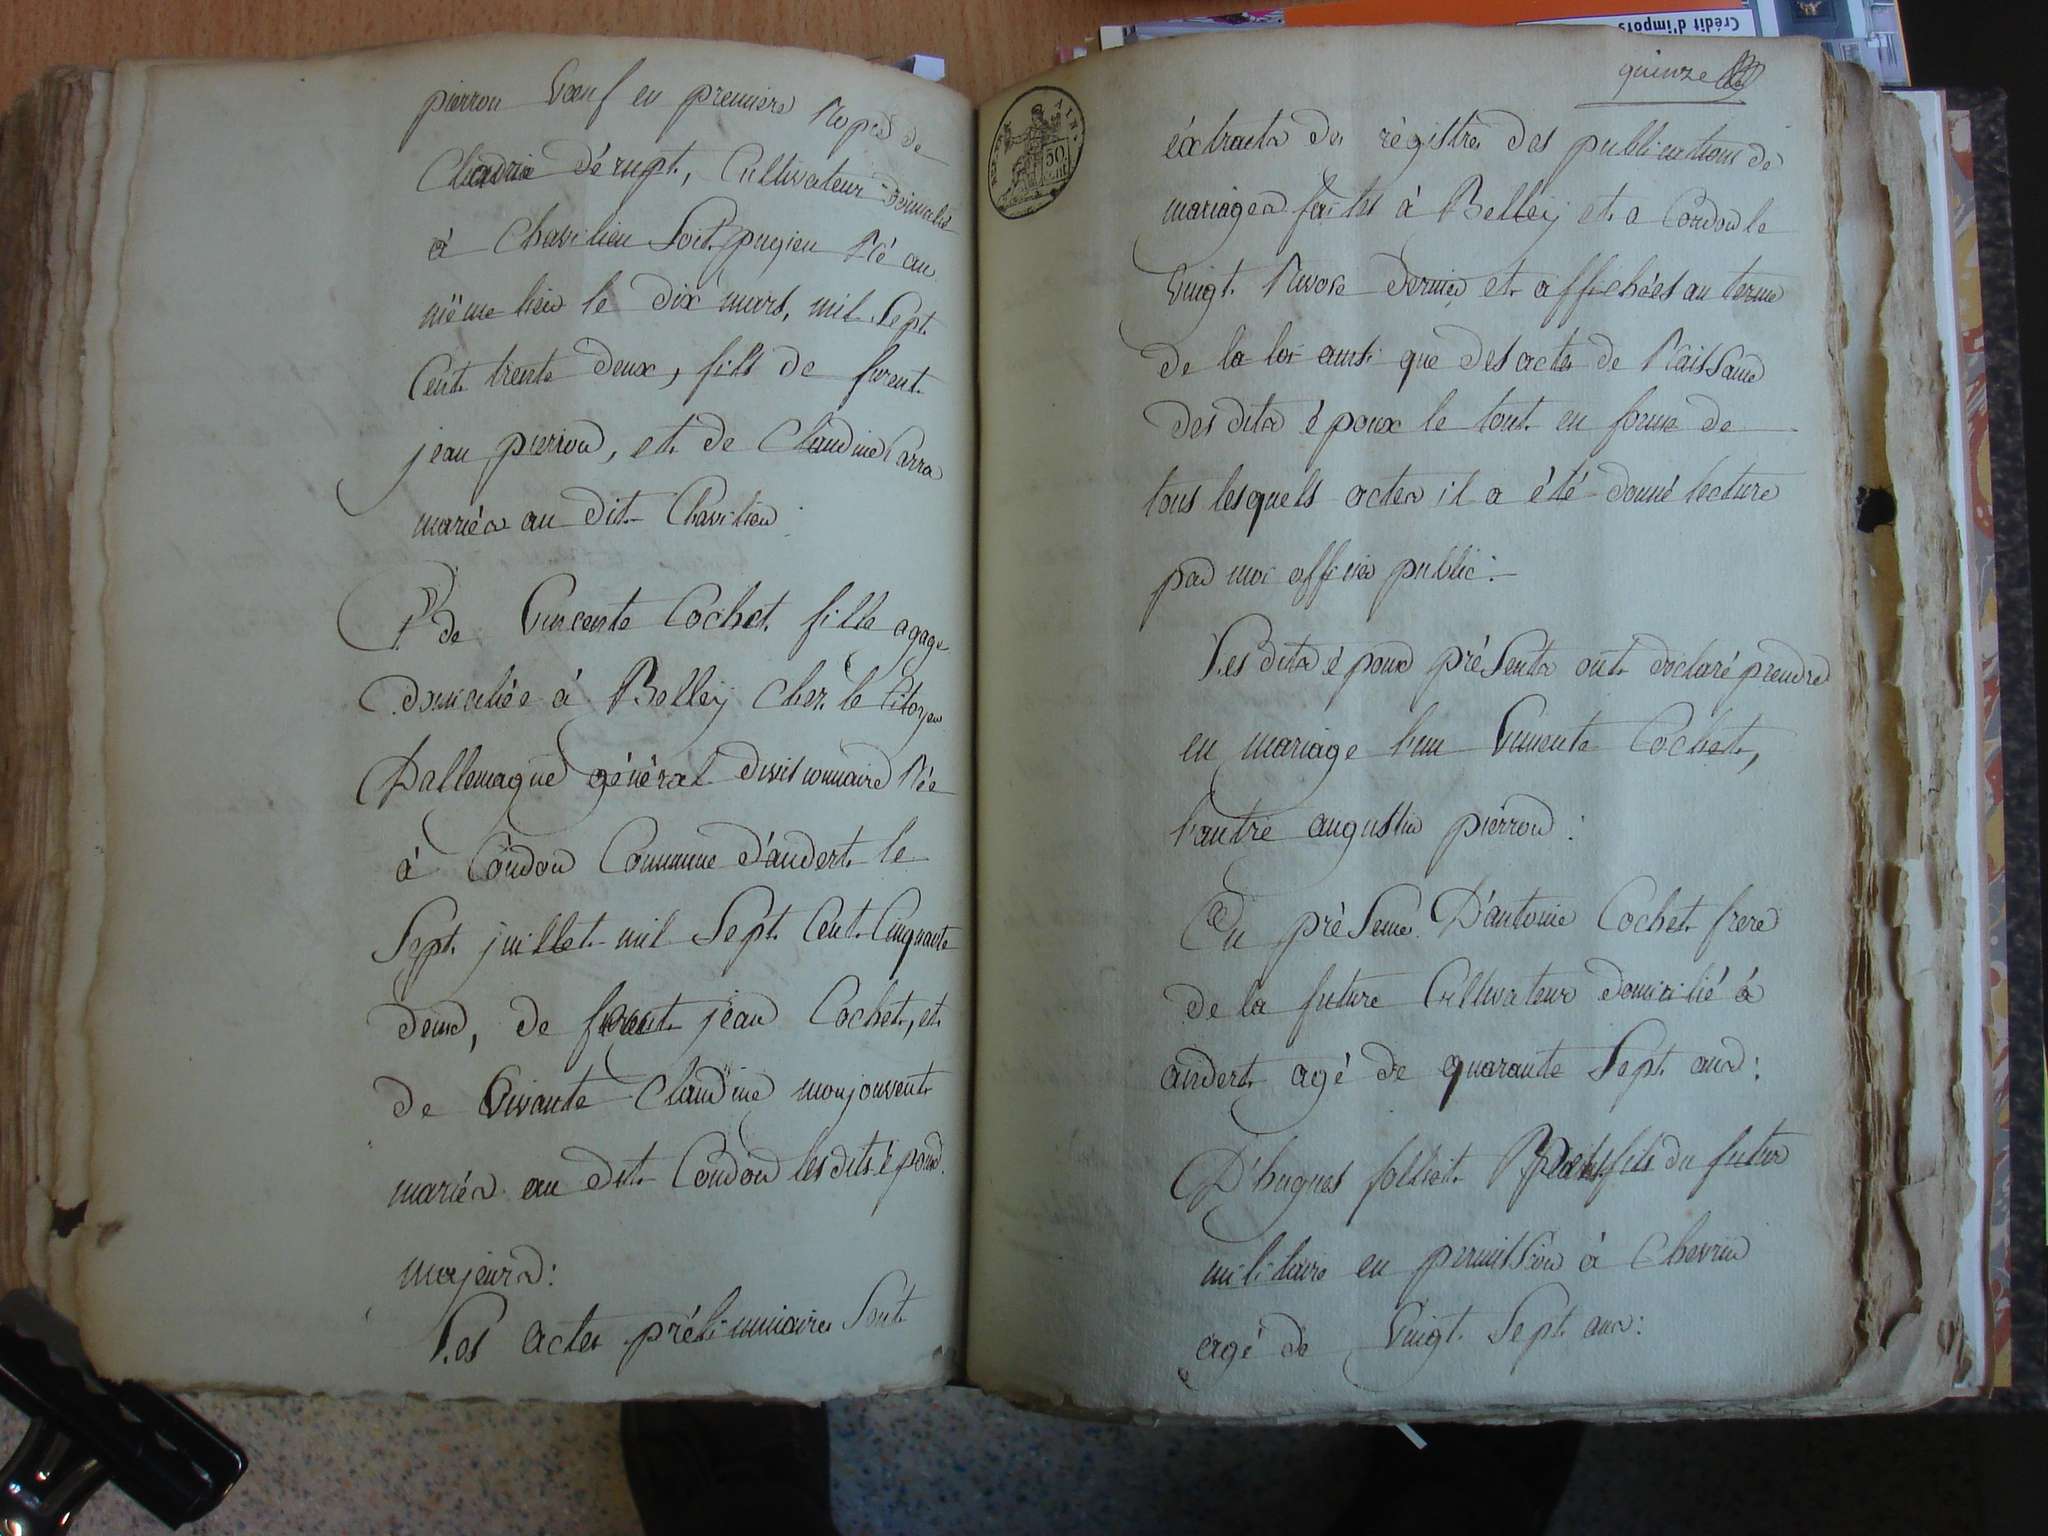 pierron Voeuf en premiere Nopce de
Claudine Dérupt, Cultivateur domicilié
à Chavilieu Soit pugieu Né au
même lieu le dix mars, mil Sept
Cent trente deux, fils de furent
jean pierron, et de Claudine Carra
mariés au dit Chavilieu :
& de Vincente Cochet fille agage
domiciliée à Belleÿ chez le Citoyen
Dallemagne général divisionnaire Née
à Condon Commune d'andert le
Sept juillet mil Sept Cent Cinquante
deux, de jean Cochet, et
de Vivante Claudine monjouvent
mariés au dit Condon lesdits époux
majeurs :
Les actes préliminaires Sont
quinze
REP. FRA.
AIN.
50
cent
éxtraits des régistres des publications de
mariages faites à Belleÿ et a Condon le
Vingt Nivose dernier et affichées au terme
de la loi ainsi que des actes de Naissance
des dits époux le tout en forme de
tous lesquels actes il a été donné lecture
par moi officier public :
Les dits époux présents ont déclaré prendre
en mariage l'un Vincente Cochet,
l'autre augustin pierron :
En présence D'antoine Cochet frere
de la future Cultivateur domicilié à
andert agé de quarante Sept ans :
D'hugues folliet fils du futur
militaire en permission à Chevrin
agé de Vingt Sept ans :
Crédit d'impôts